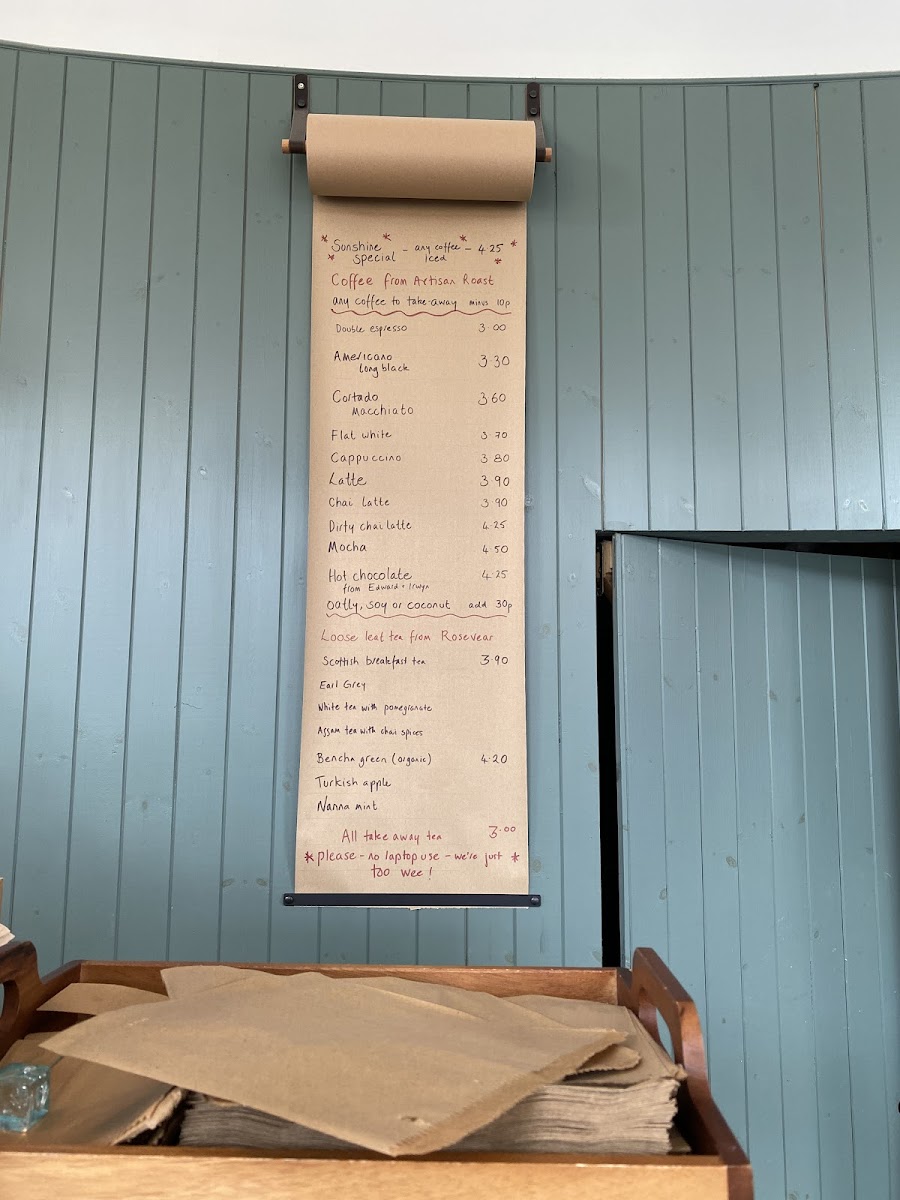 * Sunshine * - any coffee * - 4.25 *
* special iced *
Coffee from Artisan Roast
any coffee to take-away minus 10p
Double espresso 3.00
Americano 3.30
long black
Cortado 3.60
Macchiato
Flat white 3.70
Cappuccino 3.80
Latte 3.90
Chai Latte 3.90
Dirty chai latte 4.25
Mocha 4.50
Hot chocolate 4.25
from Edward + Irwyn
oatly, soy or coconut add 30p
Loose leaf tea from Rosevear
Scottish breakfast tea 3.90
Earl Grey
White tea with pomegranate
Assam tea with chai spices
Bencha green (organic) 4.20
Turkish apple
Nanna mint
All take away tea 3.00
* please - no laptop use - we're just *
too wee!